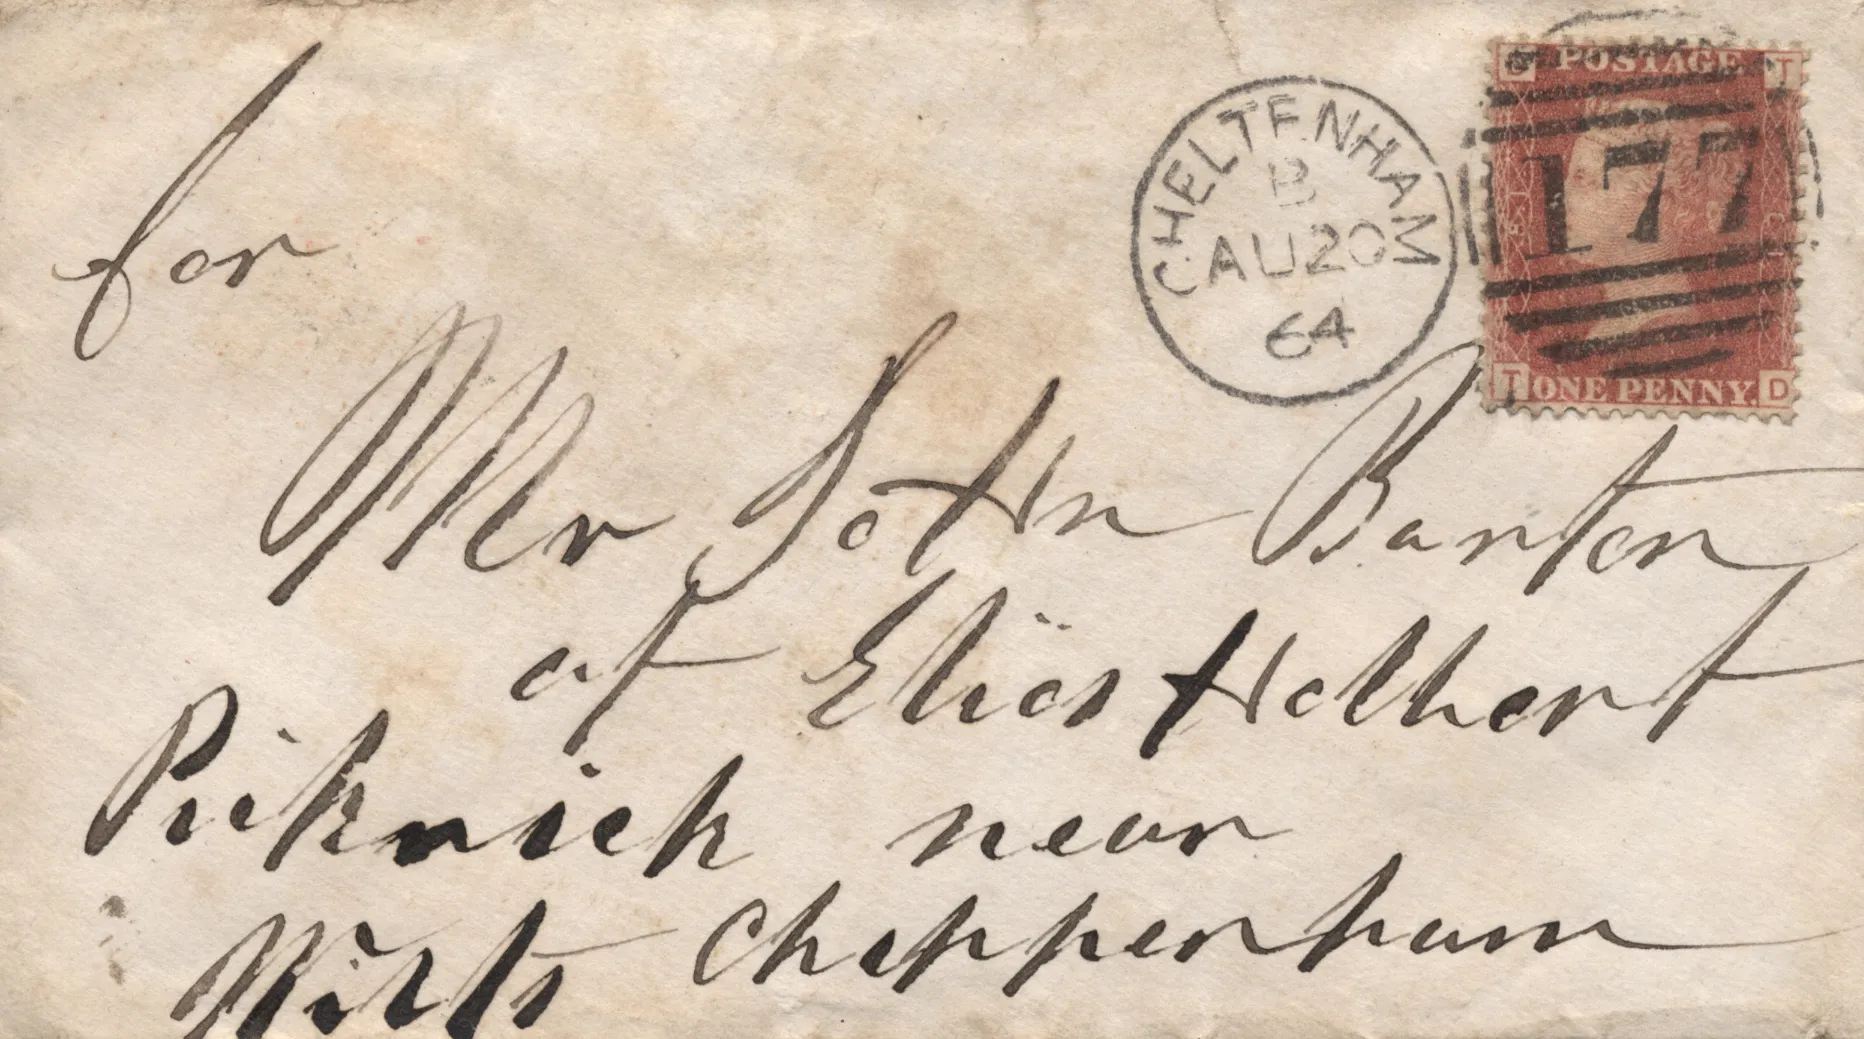 for
Mr John Barton
at Elias Holbert
Pickrick near
Chappenham
Wilts
CHELTENHAM
B
AU 20
64
POSTAGE
T
177
T ONE PENNY. D